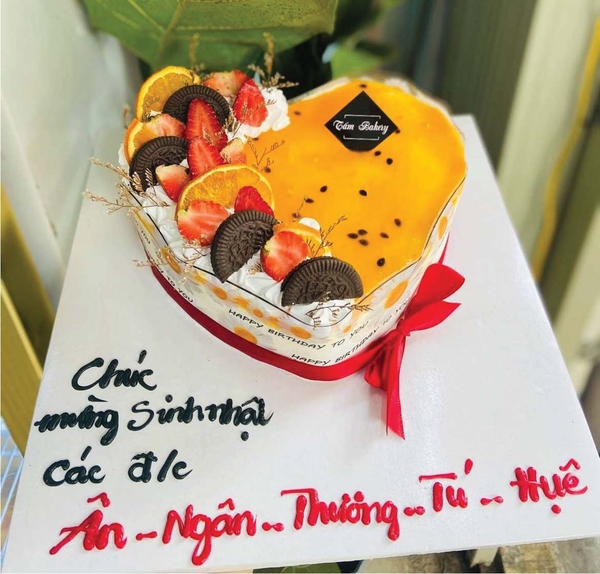 Tám Bakery
HAPPY BIRTHDAY TO YOU
HAPPY BIRTHDAY TO YOU
Chúc
mừng Sinh nhật
các đ/c
Ân - Ngân.. Thương.. Tú.. Huệ